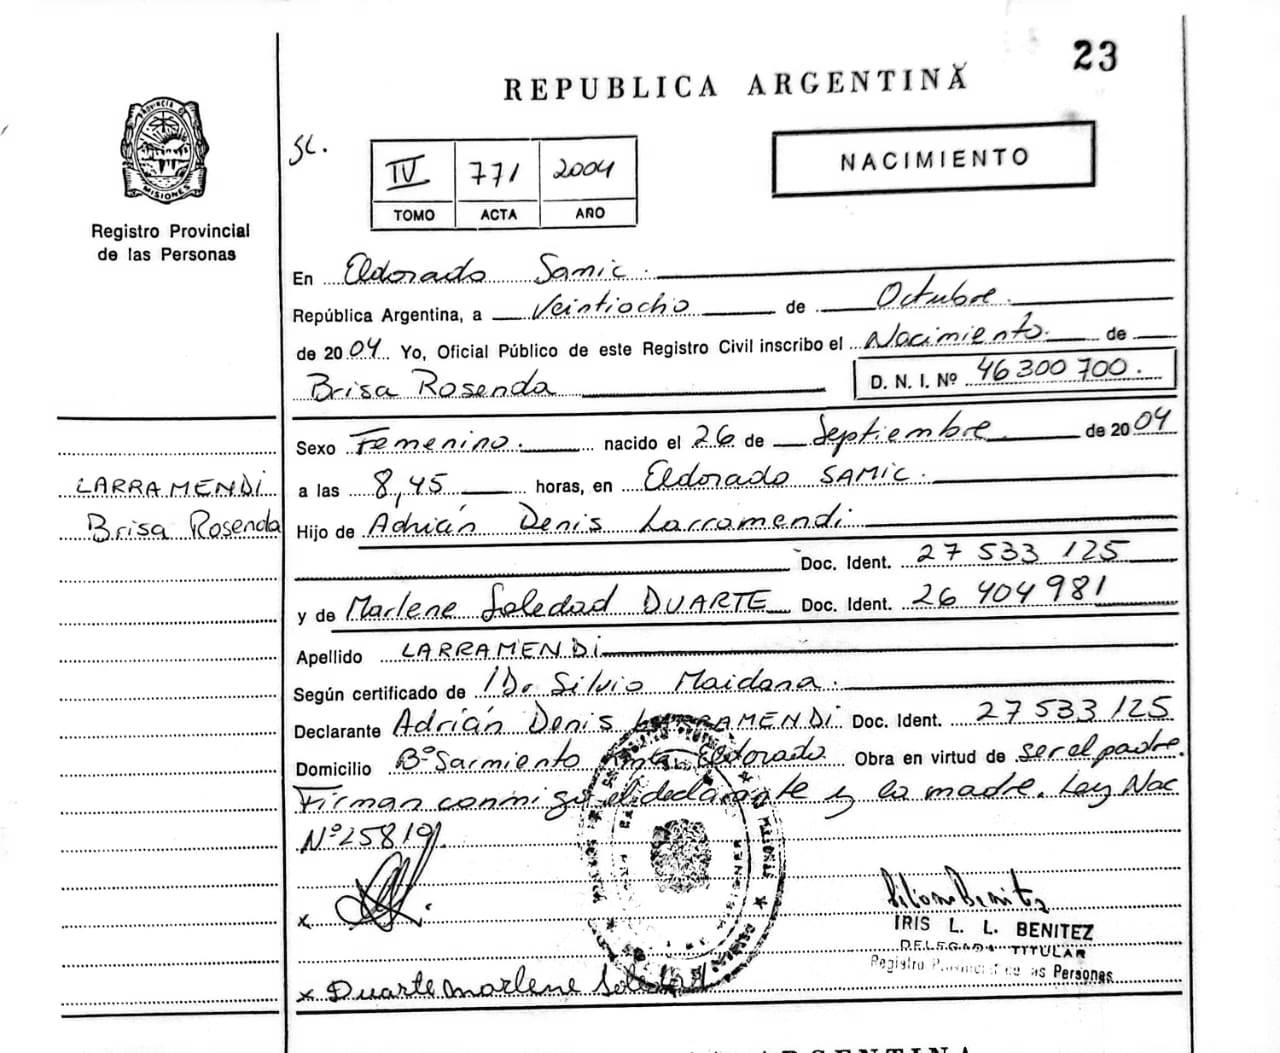 23
REPUBLICA ARGENTINA
NACIMIENTO
SC.
IV 771 2004
TOMO ACTA AÑO
PROVINCIA DE
MISIONES
Registro Provincial
de las Personas
En Eldorado Samic.
República Argentina, a Veintiocho de Octubre
de 2004 Yo, Oficial Público de este Registro Civil inscribo el Nacimiento. de
Brisa Rosenda D. N. I. Nº 46 300 700.
Sexo Femenino. nacido el 26 de Septiembre de 2004
LARRAMENDI
Brisa Rosenda
a las 8,45 horas, en Eldorado SAMIC.
Hijo de Adrián Denis Larramendi
Doc. Ident. 27 533 125
y de Marlene Soledad DUARTE Doc. Ident. 26 404 981
Apellido LARRAMENDI
Según certificado de Dr Silvio Maidana.
Declarante Adrián Denis LARRAMENDI Doc. Ident. 27 533 125
Domicilio Bº Sarmiento Eldorado Obra en virtud de ser el padre.
Firman conmigo el declarante y la madre. Ley Nac
Nº 25819.
x
IRIS L. L. BENITEZ
DELEGADA TITULAR
Registro Provincial de las Personas
x Duarte Marlene Soledad
ARGENTINA